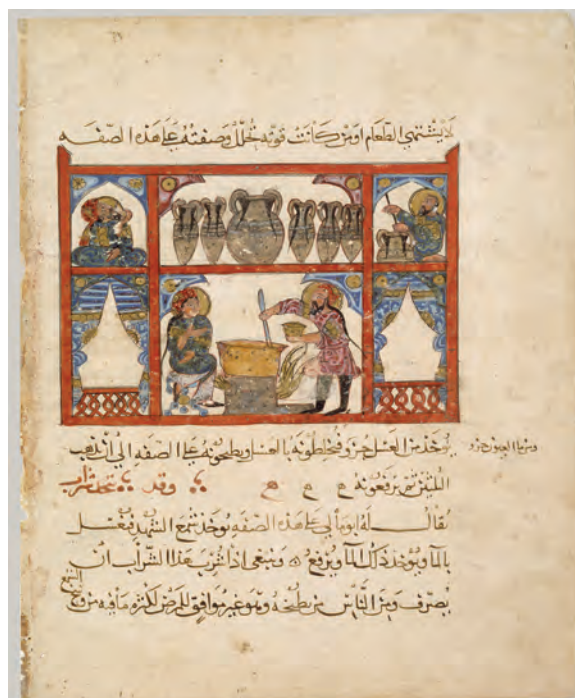 لا يشتهي الطعام او من كانت قوته تحلل وصفته على هذه الصفه
يوخذ من العسل جزو فيخلطونه بالعسل ويطبخونه على الصفه الى ان تذهب
ومن ما العيون جزو
الثلثين ثم يرفعونه وقد يتخذ شراب
يقال له ابومالي على هذه الصفه يوخذ شمع الشهد فيغسل
بالما ويوخذ ذلك الما ويرفع وينبغي اذا شرب هذا الشراب ان
يصرف ومن الناس من يطبخه وهو غير موافق للمرض لكثره ما فيه من وسخ
الشمع